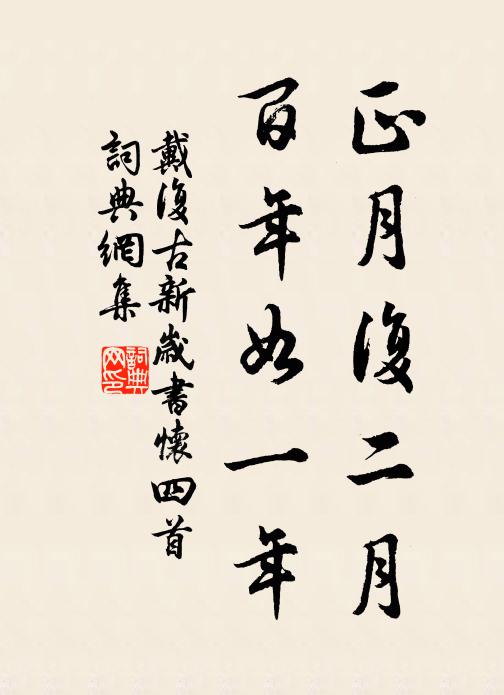 正月復二月
百年如一年
戴復古新歲書懷四首
詞典網集
詞典网印